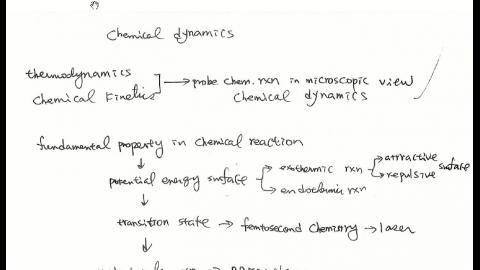 chemical dynamics
thermodynamics
chemical kinetics → probe chem. rxn in microscopic view
chemical dynamics
fundamental property in chemical reaction
↓
potential energy surface exothermic rxn attractive surface
endothermic rxn repulsive
↓
transition state → femtosecond chemistry → laser
↓